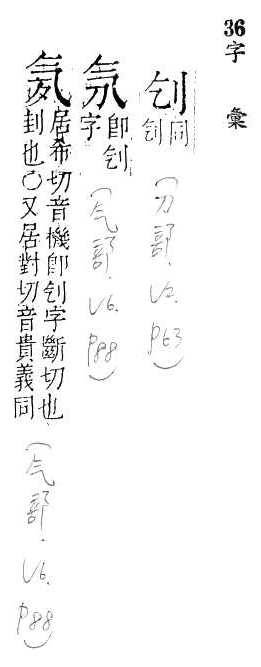 36字 彙
刉同
刉
(刀部. V2. P63)
卽刉
字
(气部. V6. P88)
居希切音機卽刉字斷切也
封也○又居對切音貴義同
(气部. V6. P88)